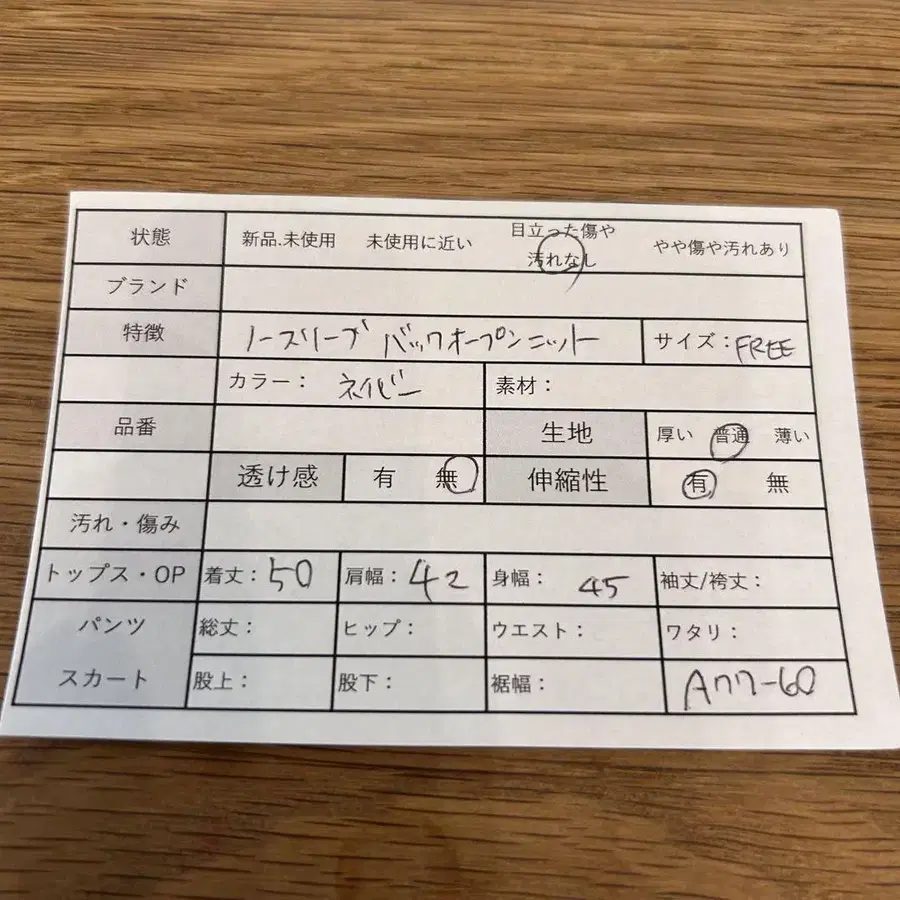 状態 新品.未使用 未使用に近い 目立った傷や汚れなし やや傷や汚れあり
ブランド
特徴 ノースリーブ バックオープンニット サイズ：FREE
カラー： ネイビー 素材：
品番 生地 厚い 普通 薄い
透け感 有 無 伸縮性 有 無
汚れ・傷み
トップス・OP 着丈：50 肩幅：42 身幅：45 袖丈/裄丈：
パンツ 総丈： ヒップ： ウエスト： ワタリ：
スカート 股上： 股下： 裾幅： A77-60